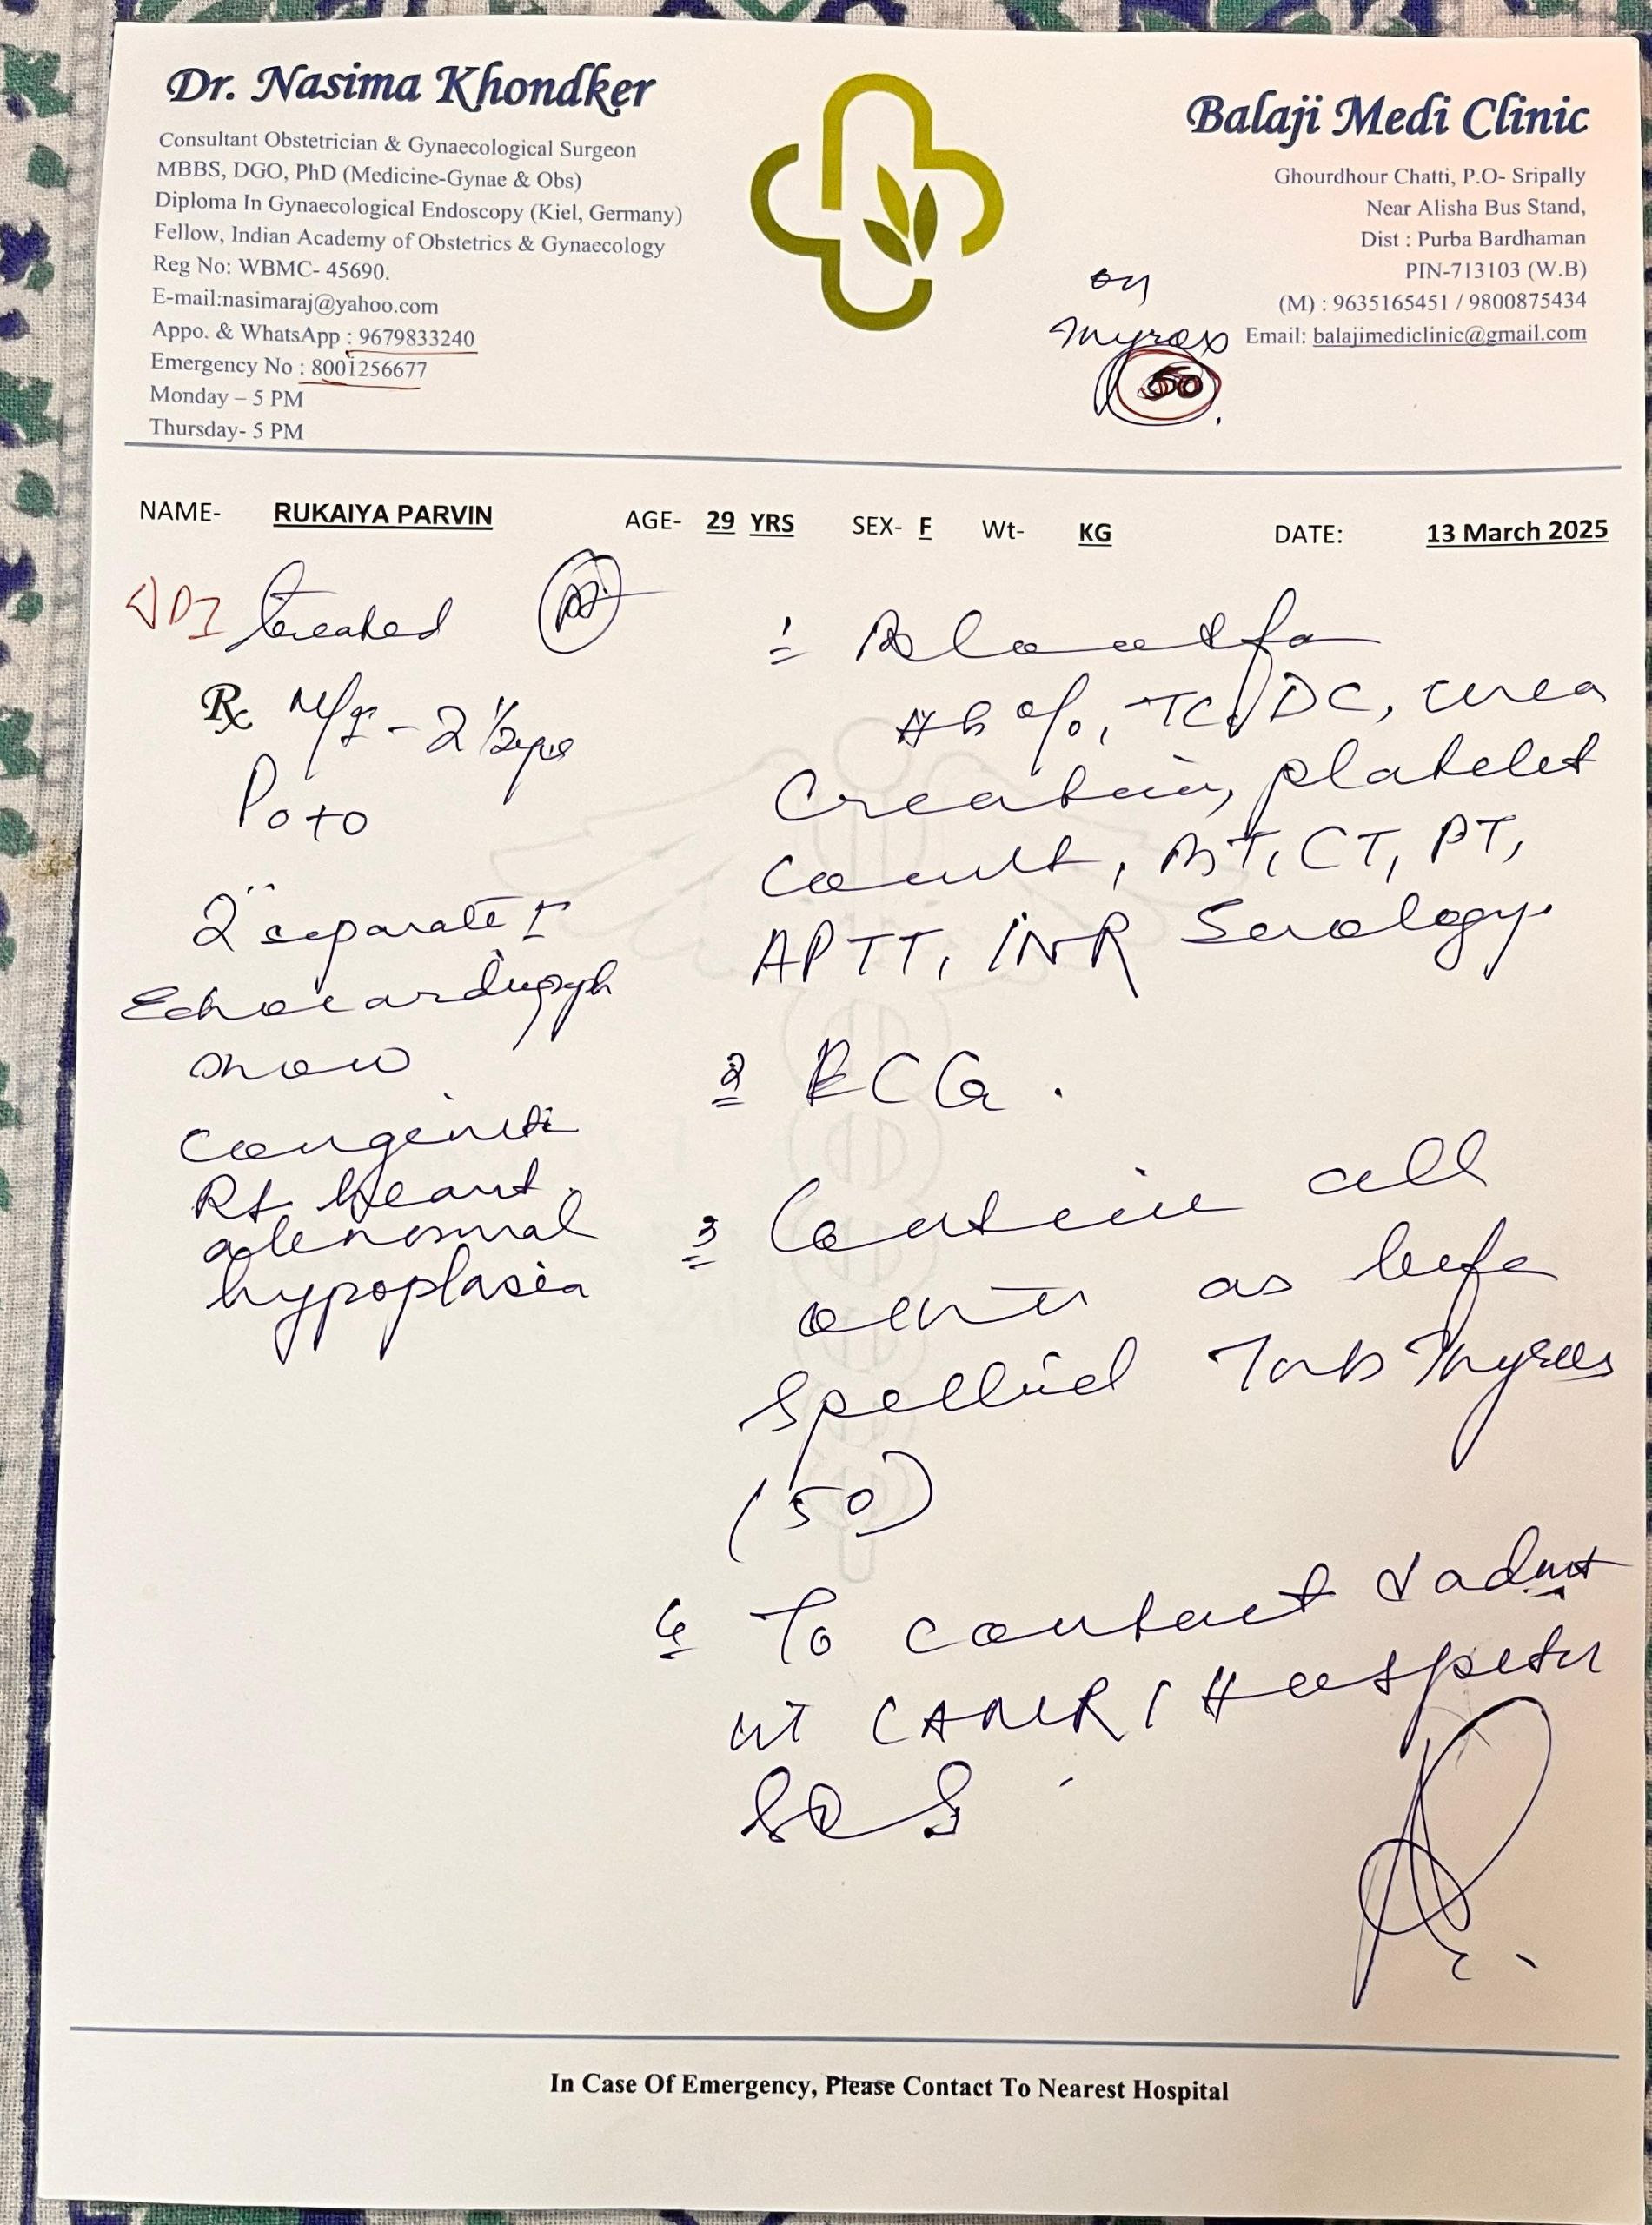 Dr. Nasima Khondker
Consultant Obstetrician & Gynaecological Surgeon
MBBS, DGO, PhD (Medicine-Gynae & Obs)
Diploma In Gynaecological Endoscopy (Kiel, Germany)
Fellow, Indian Academy of Obstetrics & Gynaecology
Reg No: WBMC- 45690.
E-mail:nasimaraj@yahoo.com
Appo. & WhatsApp : 9679833240
Emergency No : 8001256677
Monday – 5 PM
Thursday- 5 PM
Balaji Medi Clinic
Ghourdhour Chatti, P.O- Sripally
Near Alisha Bus Stand,
Dist : Purba Bardhaman
PIN-713103 (W.B)
(M) : 9635165451 / 9800875434
Email: balajimediclinic@gmail.com
on
Thyrox
50
NAME- RUKAIYA PARVIN AGE- 29 YRS SEX- F Wt- KG DATE: 13 March 2025
treated
Rx M/F - 2 1/2 yrs
P0+0
2 separate
Echocardiograph
show
congenital
Rt heart
abnormal
hypoplasia
1 Blood for
Hb %, TC/DC, urea
Creatinin, platelet
Count, BT, CT, PT,
APTT, INR Serology.
2 ECG.
3 Continue all
as before
Tab Thyrox
(50)
4 To contact & admit
at CAMRI Hospital
SOS
In Case Of Emergency, Please Contact To Nearest Hospital